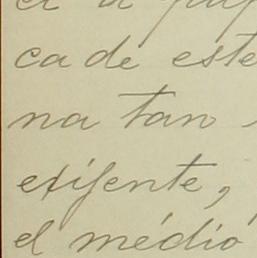 el a
ca de este
na tan
exijente,
el médio